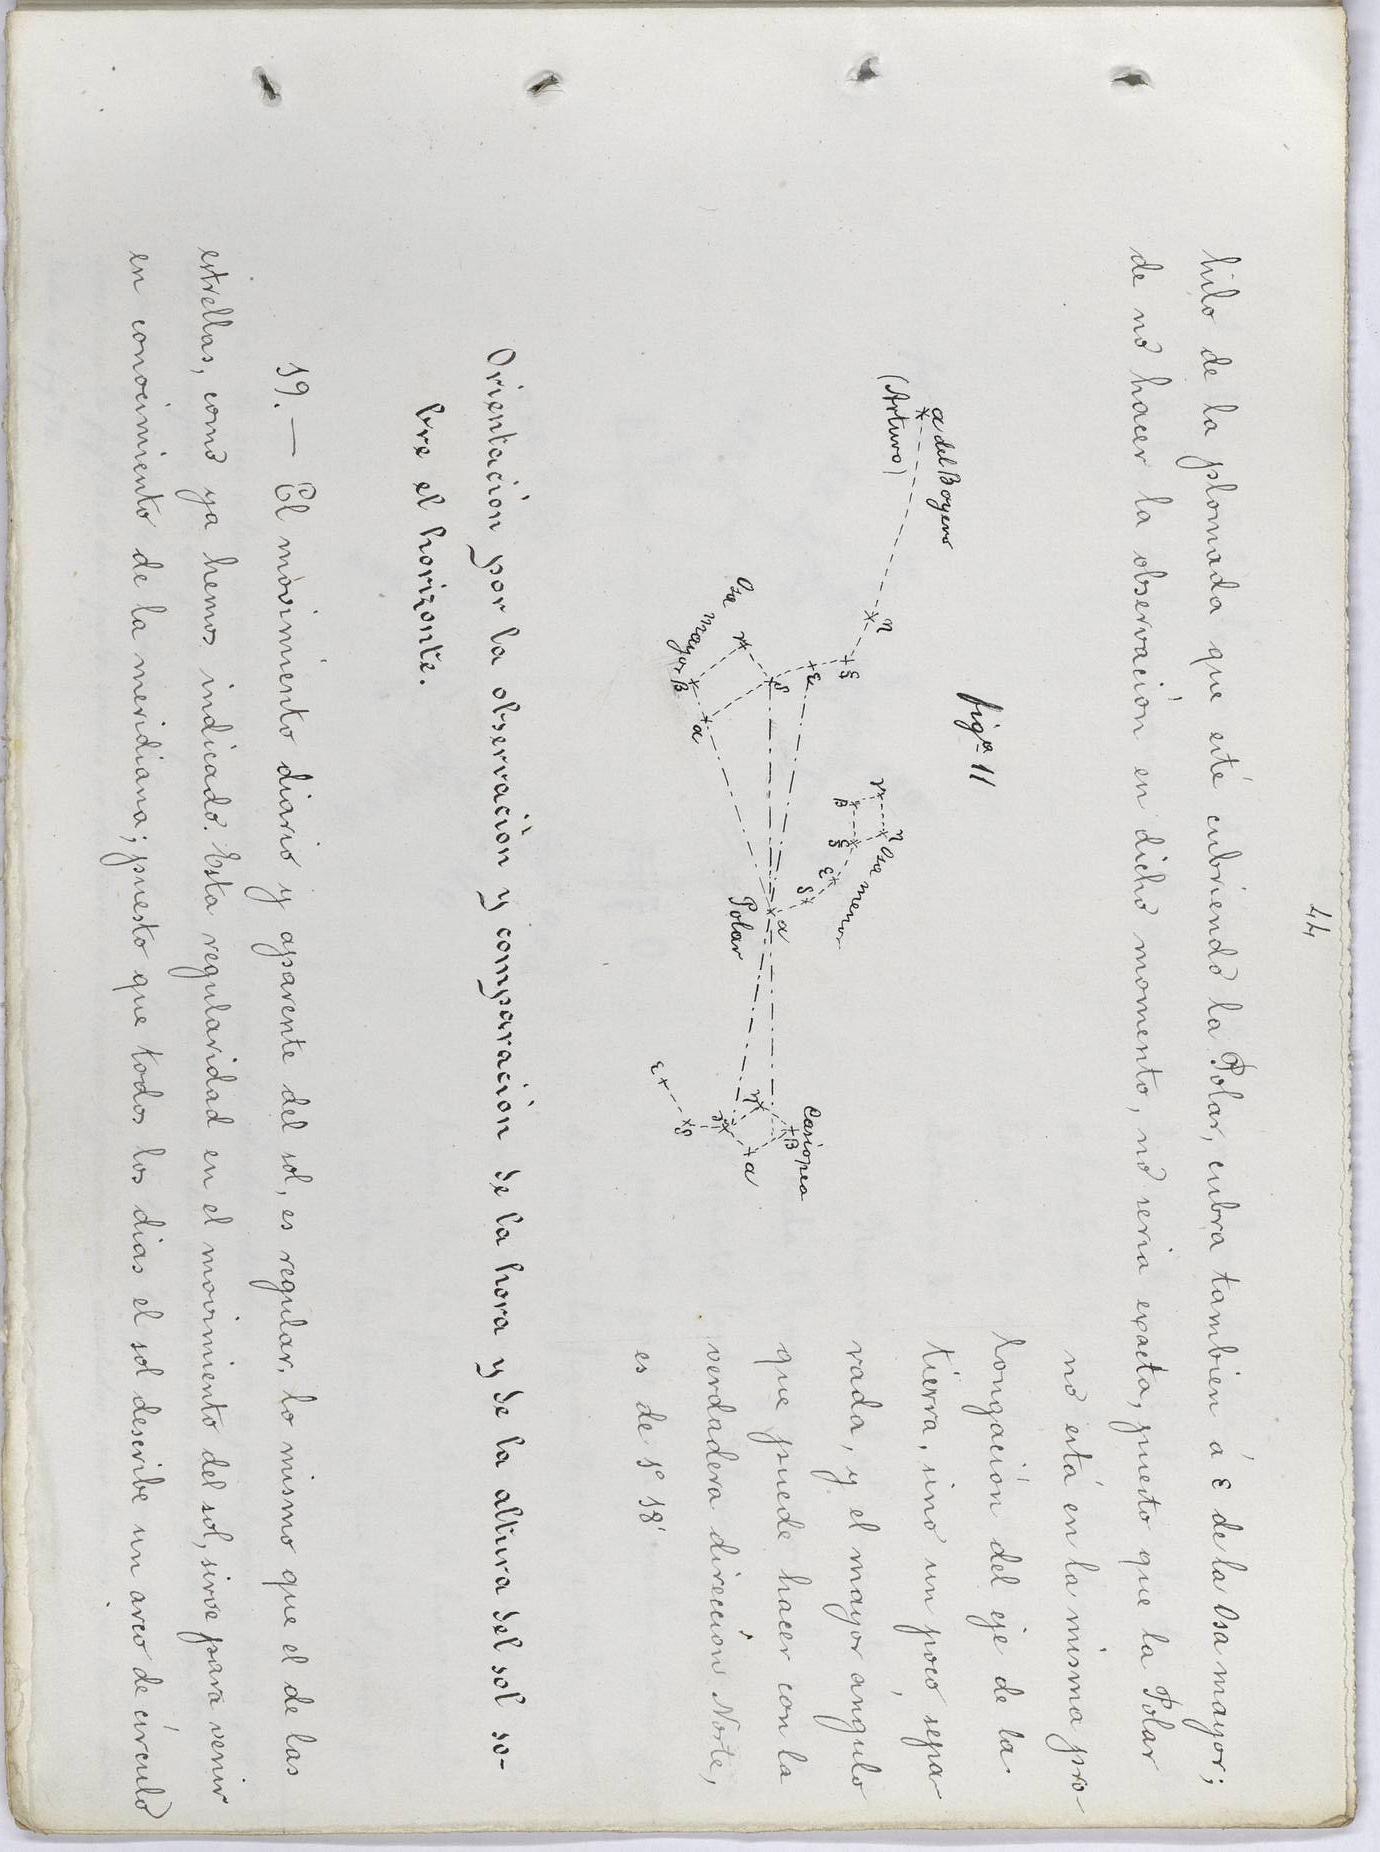 44
hilo de la plomada que esté cubriendo la Polar, cubra tambien á ε de la Osa mayor;
de no hacer la observación en dicho momento, no seria exacta, puesto que la Polar
no está en la misma pro-
longación del eje de la
tierra, sino un poco sepa-
rada, y el mayor angulo
que puede hacer con la
verdadera dirección Norte,
es de 1º 18'
figª 11
α del Boyero
(Arturo)
η
ξ
ε
δ
γ
β
α
Osa mayor
γ
η
β
ξ
ε
δ
α
Osa menor
Polar
Casiopea
β
α
γ
δ
ε
Orientación por la observación y comparación de la hora y de la altura del sol so-
bre el horizonte.
19. — El movimiento diario y aparente del sol, es regular, lo mismo que el de las
estrellas, como ya hemos indicado. Esta regularidad en el movimiento del sol, sirve para venir
en conocimiento de la meridiana; puesto que todos los dias el sol describe un arco de círculo